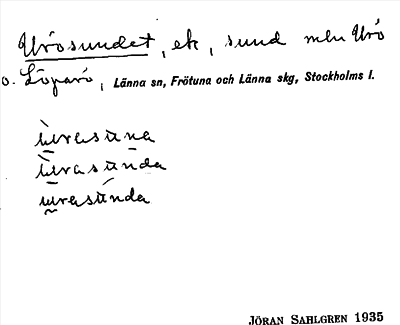 Urösundet, ek, sund mln Urö
o. Löparö, Länna sn, Frötuna och Länna skg, Stockholms l.
ùrasuna
ùrasunda
urasúnda
JÖRAN SAHLGREN 1935